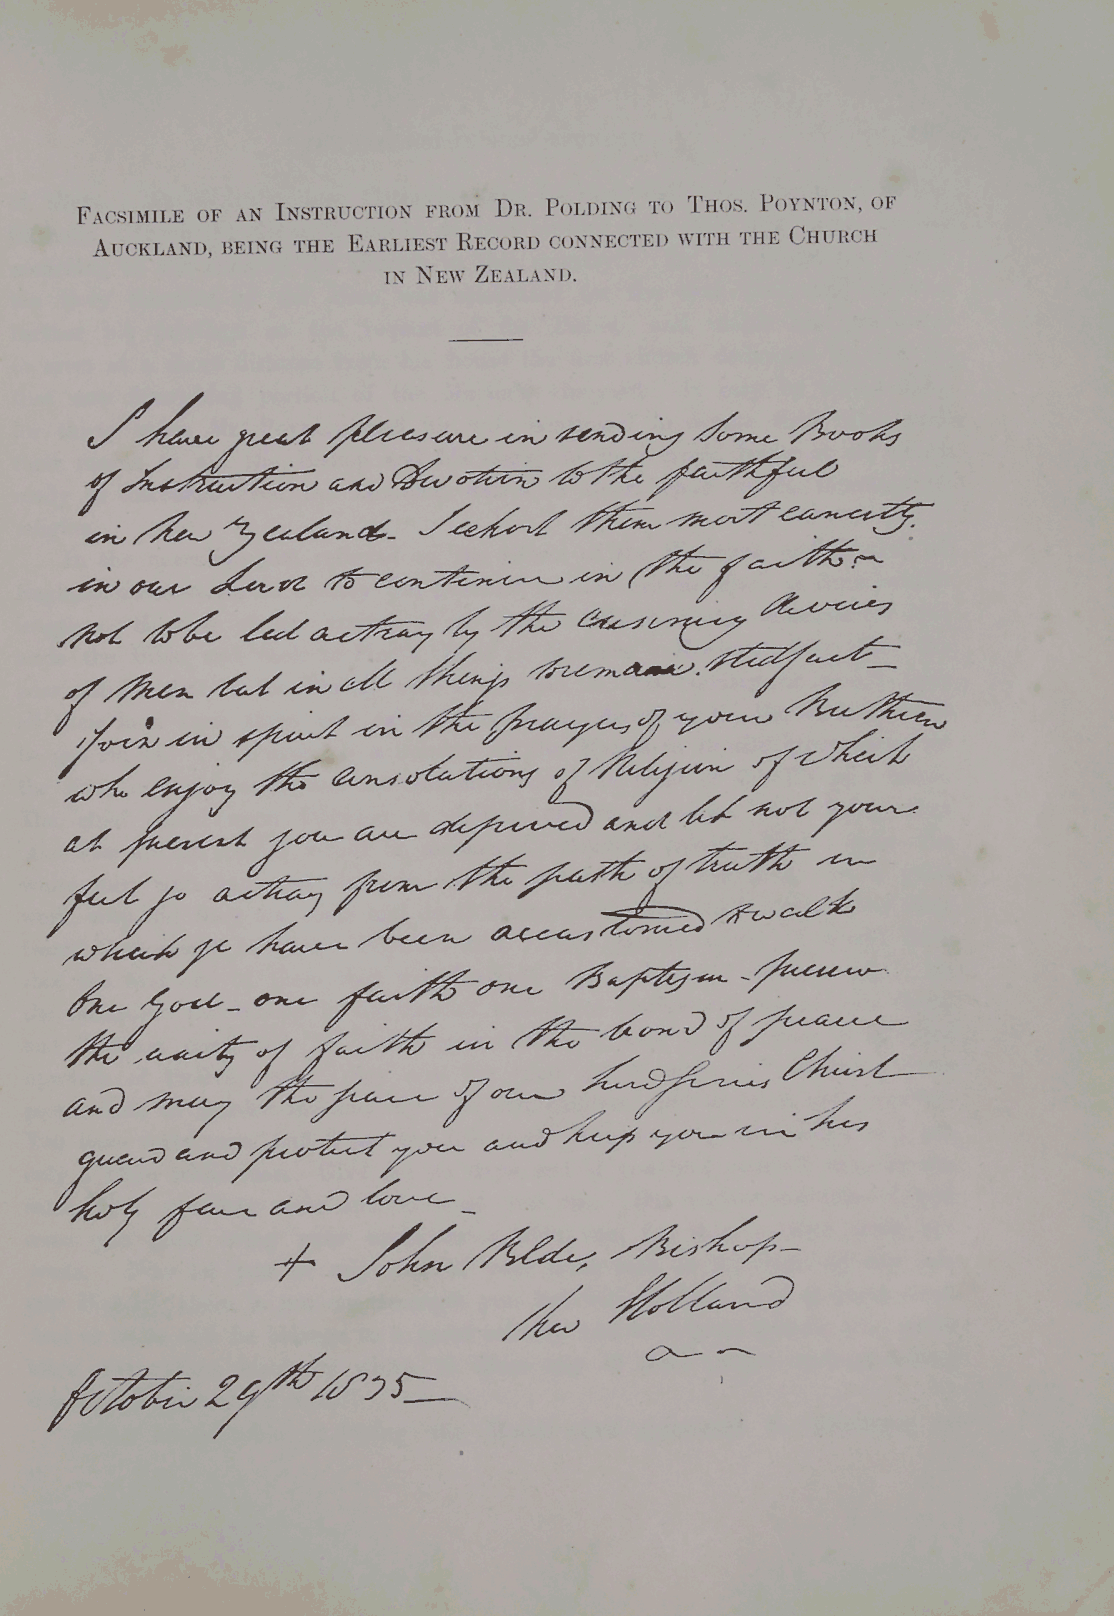 FACSIMILE OF AN INSTRUCTION FROM DR. POLDING TO THOS. POYNTON, OF
AUCKLAND, BEING THE EARLIEST RECORD CONNECTED WITH THE CHURCH
IN NEW ZEALAND.
I have great pleasure in sending some Books
of Instruction and Devotion to the faithful
in New Zealand - I exhort them most earnestly
in our Lord to continue in the faith -
not to be led astray by the cunning devices
of Men but in all things to remain stedfast -
Join in spirit in the prayers of your Brethren
who enjoy the consolations of Religion of which
at present you are deprived and let not your
feet go astray from the path of truth in
which ye have been accustomed to walk
One God - one faith one Baptism - preserve
the unity of faith in the bond of peace
and may the peace of our Lord Jesus Christ
guard and protect you and keep you in his
holy fear and love -
+ John Bede, Bishop -
New Holland
October 29th 1835 -